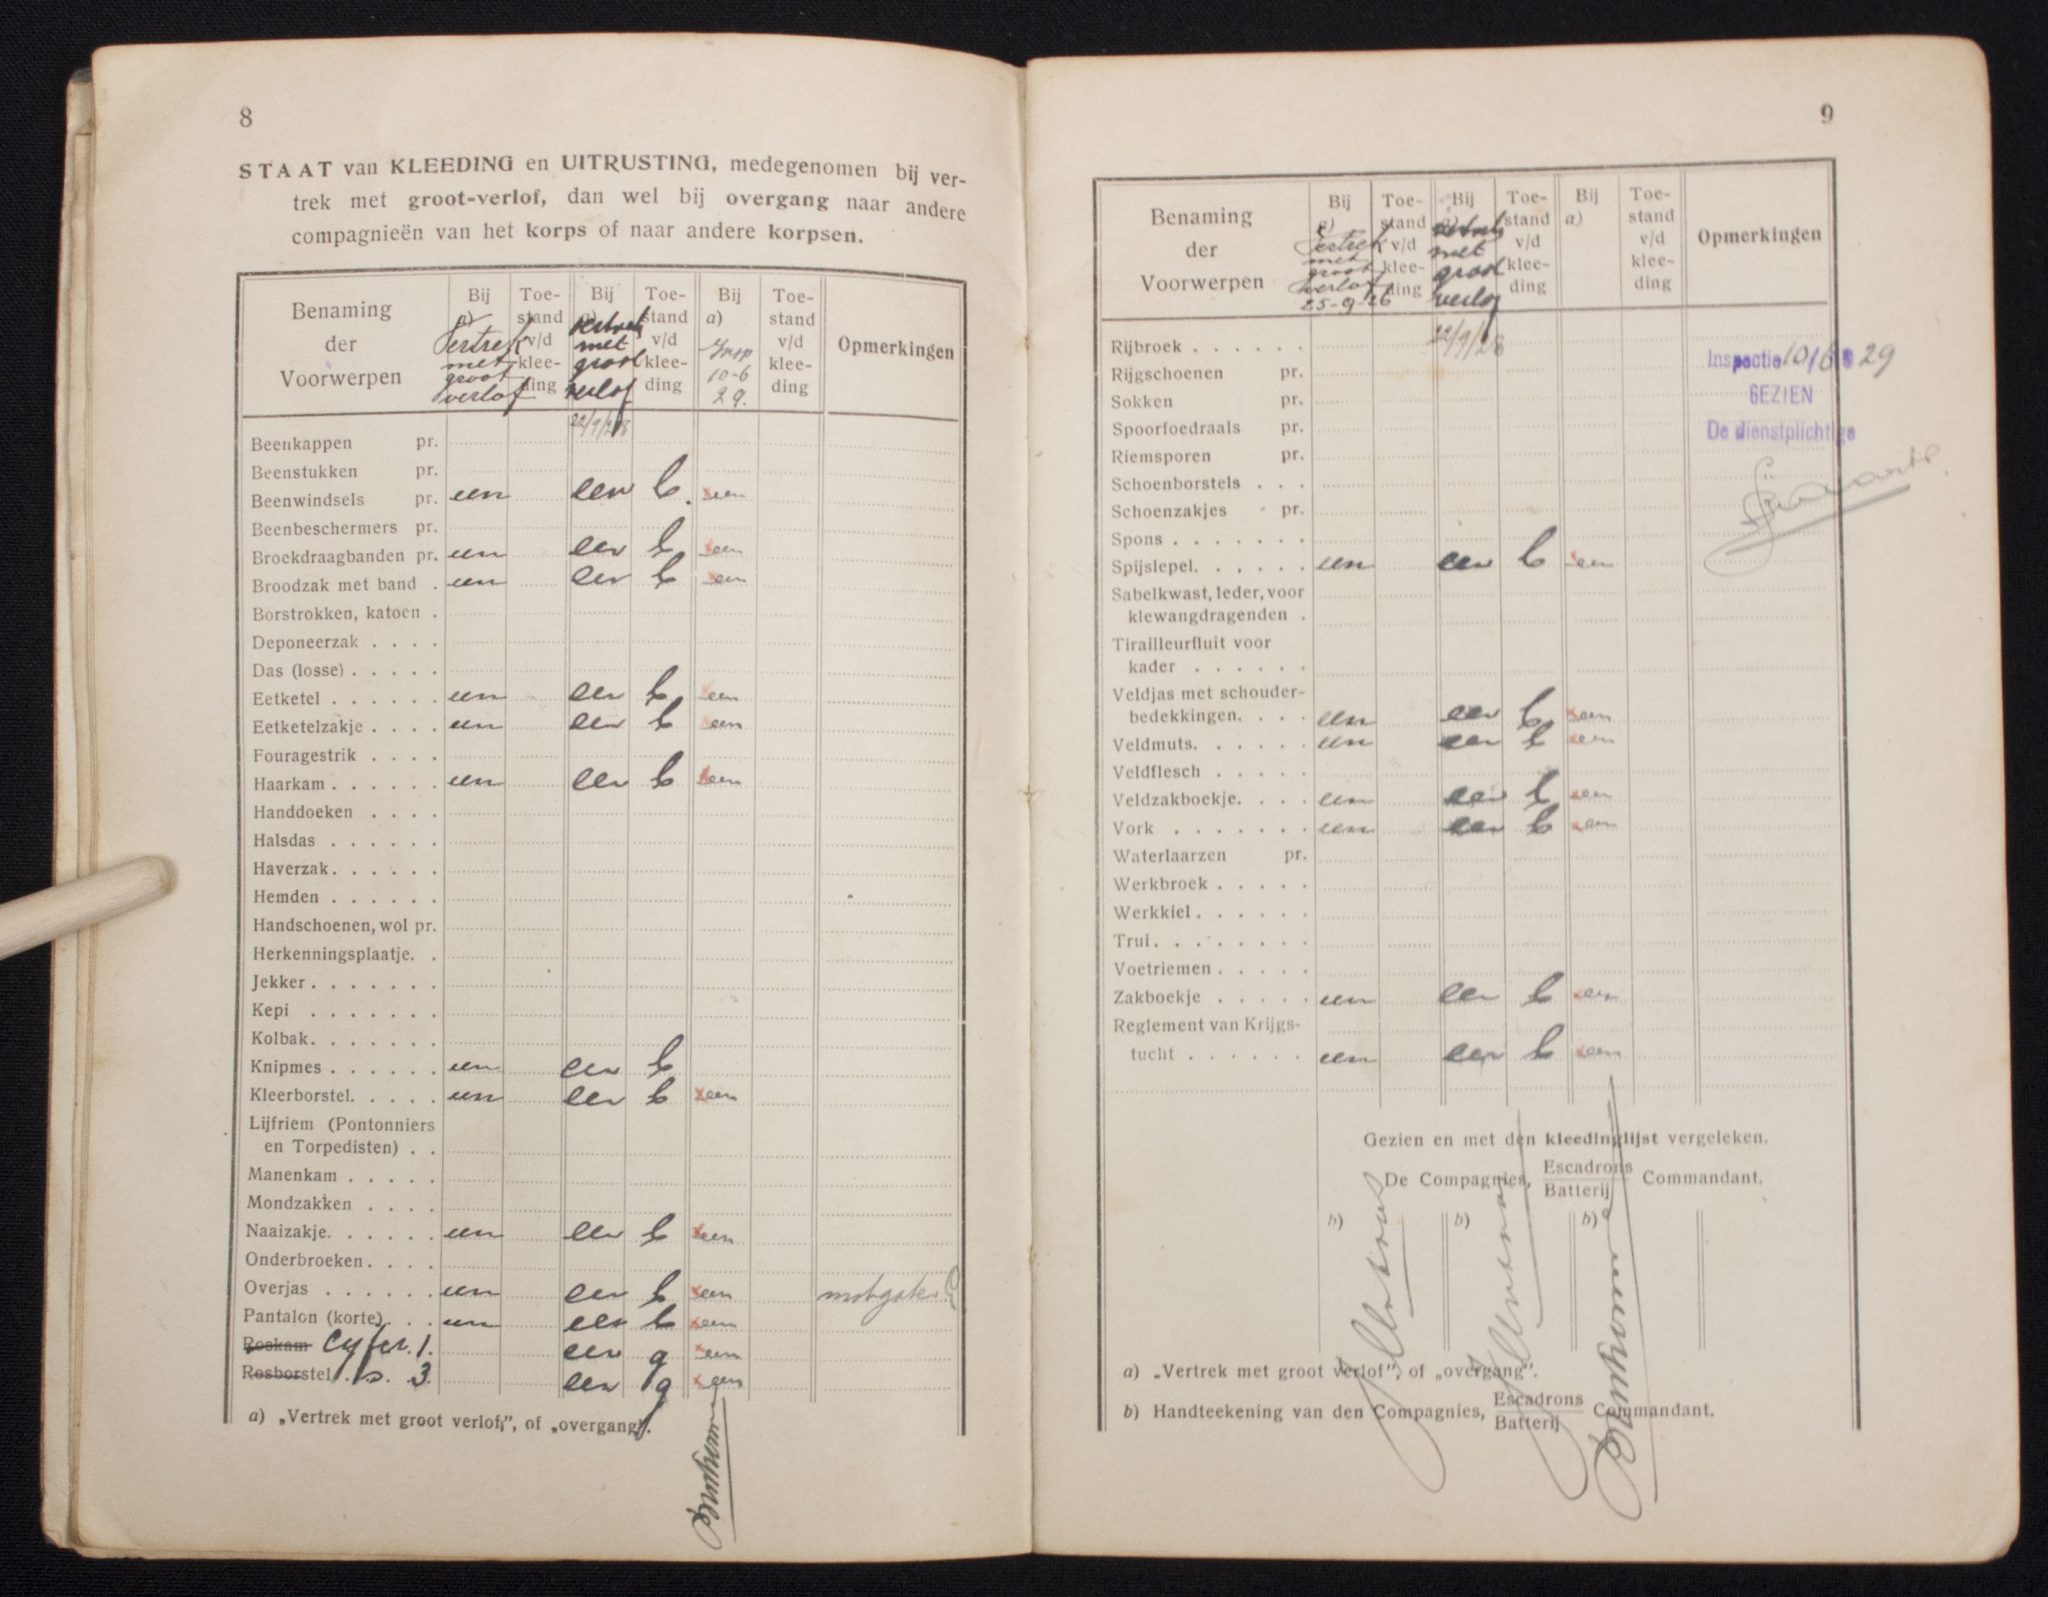 8
STAAT van KLEEDING en UITRUSTING, medegenomen bij ver-
trek met groot-verlof, dan wel bij overgang naar andere
compagnieën van het korps of naar andere korpsen.
Benaming der Voorwerpen | Bij a) Vertrek met groot verlof | Toe-stand v/d klee-ding | Bij a) vertrek met groot verlof 22/9/28 | Toe-stand v/d klee-ding | Bij a) Insp 10-6 29. | Toe-stand v/d klee-ding | Opmerkingen
Beenkappen pr.
Beenstukken pr.
Beenwindsels pr. een een b. een
Beenbeschermers pr.
Broekdraagbanden pr. een een b een
Broodzak met band . een een b een
Borstrokken, katoen .
Deponeerzak . . . .
Das (losse) . . . . .
Eetketel . . . . . . een een b een
Eetketelzakje . . . . een een b een
Fouragestrik . . . .
Haarkam . . . . . . een een b een
Handdoeken . . . .
Halsdas . . . . . .
Haverzak . . . . . .
Hemden . . . . . .
Handschoenen, wol pr.
Herkenningsplaatje. .
Jekker . . . . . . .
Kepi . . . . . . .
Kolbak . . . . . . .
Knipmes . . . . . . een een b
Kleerborstel. . . . . een een b een
Lijfriem (Pontonniers
en Torpedisten) . .
Manenkam . . . . .
Mondzakken . . . .
Naaizakje. . . . . . een een b een
Onderbroeken . . . .
Overjas . . . . . . een een b een
Pantalon (korte) . . . een een b een
Roskam cyfer. 1. een g een
Rosborstel . s. 3. een g een
a) „Vertrek met groot verlof,", of „overgang".
9
Benaming der Voorwerpen | Bij a) Vertrek met groot verlof 25-9-26 | Toe-stand v/d klee-ding | Bij a) vertrek met groot verlof 22/9/28 | Toe-stand v/d klee-ding | Bij a) | Toe-stand v/d klee-ding | Opmerkingen
Rijbroek . . . . . .
Inspectie 10/6 29
Rijgschoenen pr.
GEZIEN
Sokken pr.
De dienstplichtige
Spoorfoedraals pr.
Riemsporen pr.
Schoenborstels . . .
Schoenzakjes pr.
Spons . . . . . . .
Spijslepel. . . . . . een een b een
Sabelkwast, leder, voor
klewangdragenden .
Tirailleurfluit voor
kader . . . . . .
Veldjas met schouder-
bedekkingen. . . . een een b een
Veldmuts. . . . . . een een b een
Veldflesch . . . . .
Veldzakboekje. . . . een een b een
Vork . . . . . . . een een b een
Waterlaarzen pr.
Werkbroek . . . . .
Werkkiel . . . . . .
Trui . . . . . . . .
Voetriemen . . . . .
Zakboekje . . . . . een een b een
Reglement van Krijgs-
tucht . . . . . . een een b een
Gezien en met den kleedinglijst vergeleken.
De Compagnies, Escadrons Batterij Commandant.
b) b) b)
a) „Vertrek met groot verlof", of „overgang".
b) Handteekening van den Compagnies, Escadrons Batterij Commandant.